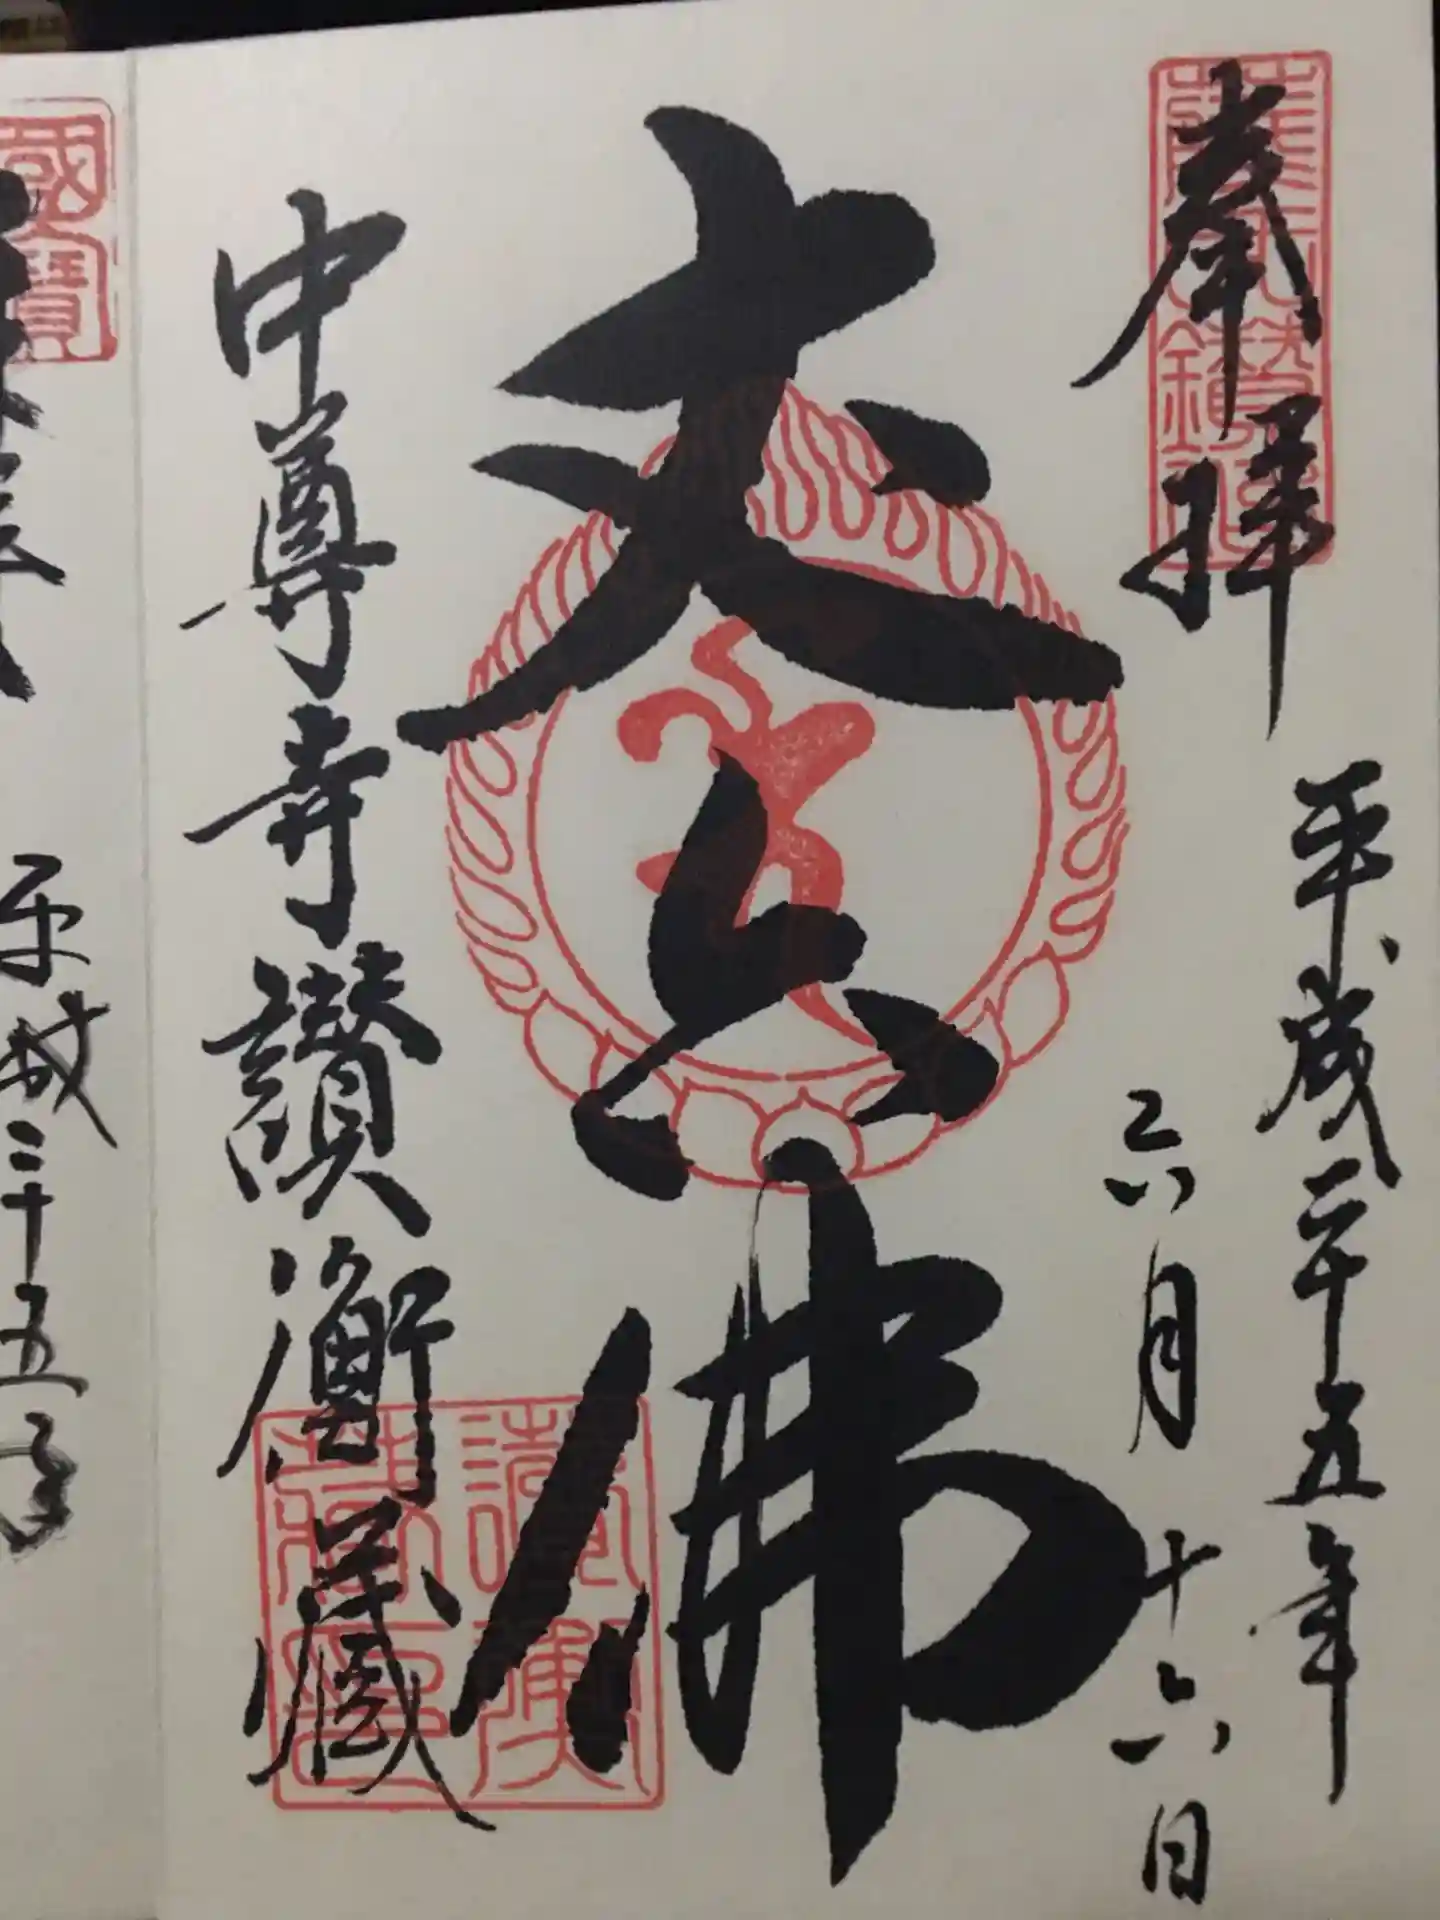 奉拝
平成二十五年
六月十六日
丈六佛
中尊寺讃衡藏
國寶
平成二十五年